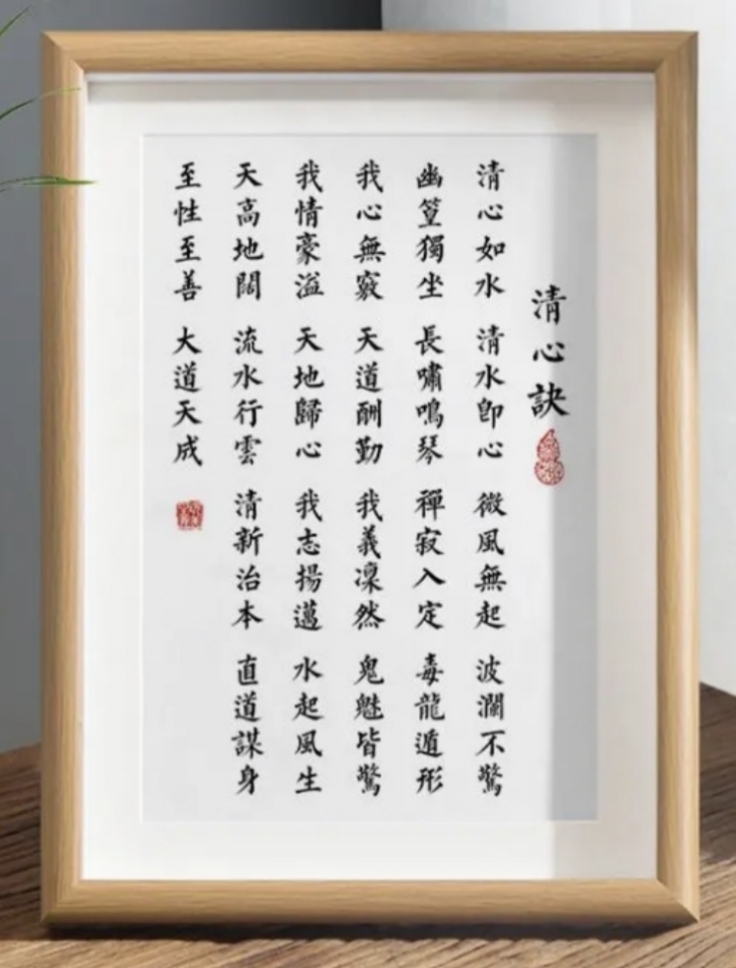 清心訣
清心如水 清水即心 微風無起 波瀾不驚
幽篁獨坐 長嘯鳴琴 禪寂入定 毒龍遁形
我心無竅 天道酬勤 我義凜然 鬼魅皆驚
我情豪溢 天地歸心 我志揚邁 水起風生
天高地闊 流水行雲 清新治本 直道謀身
至性至善 大道天成